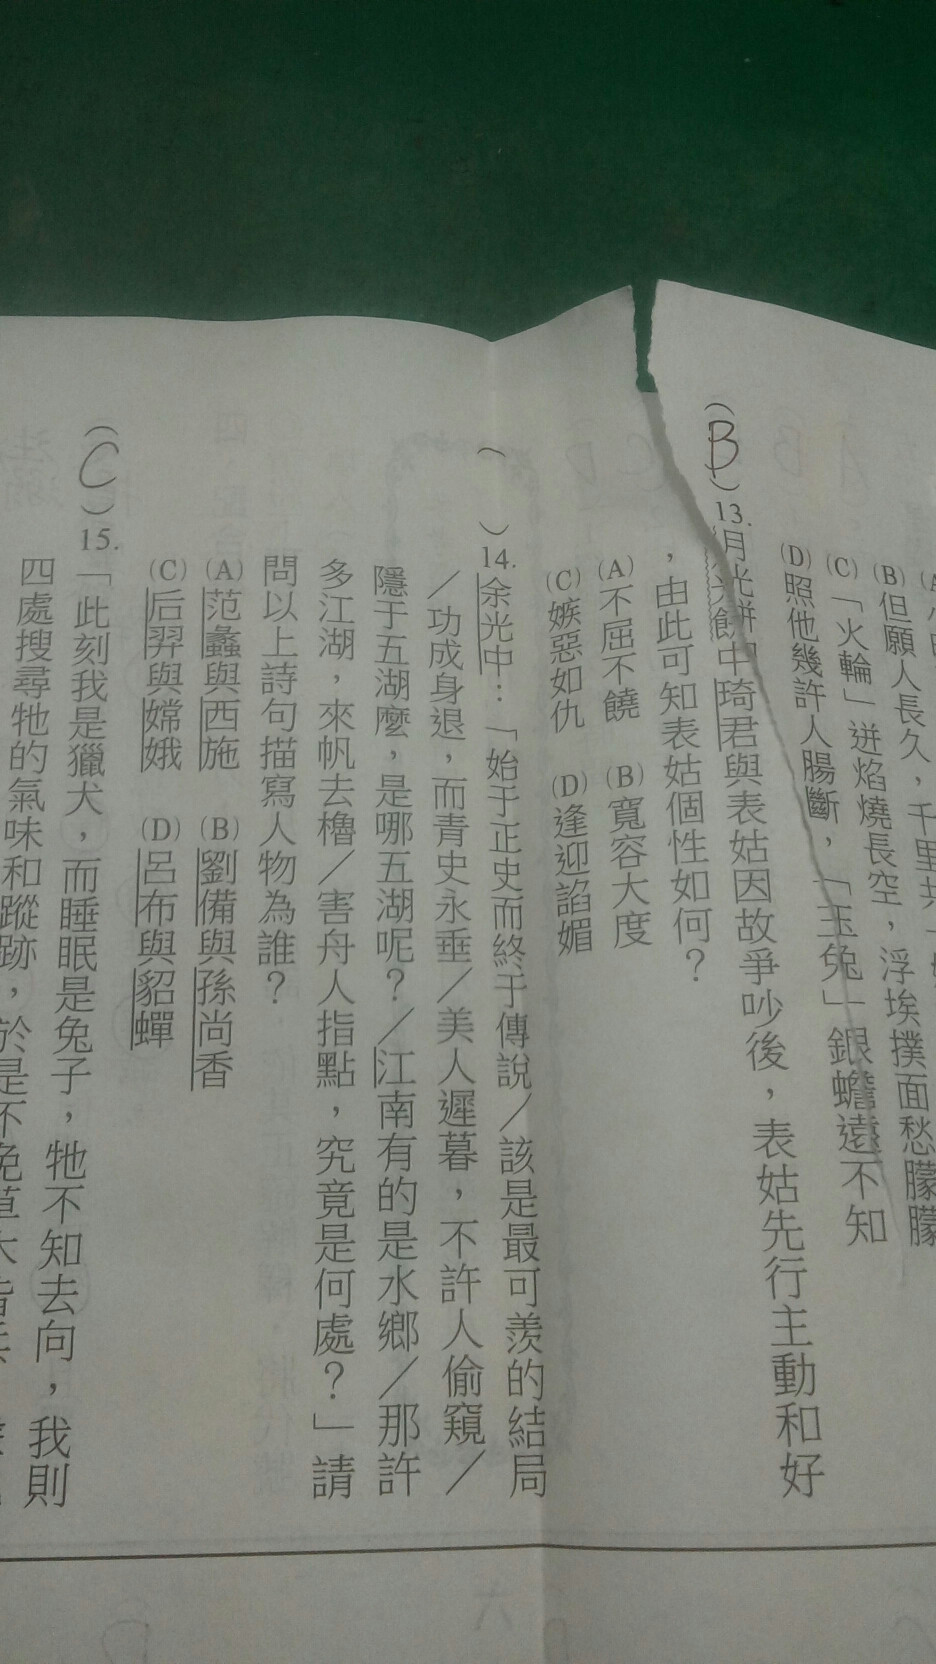 (B)但願人長久，千里共
(C)「火輪」迸焰燒長空，浮埃撲面愁朦朦
(D)照他幾許人腸斷，「玉兔」銀蟾遠不知
(B)13.月光餅中琦君與表姑因故爭吵後，表姑先行主動和好
，由此可知表姑個性如何？
(A)不屈不饒 (B)寬容大度
(C)嫉惡如仇 (D)逢迎諂媚
( )14.余光中：「始于正史而終于傳說／該是最可羨的結局
／功成身退，而青史永垂／美人遲暮，不許人偷窺／
隱于五湖麼，是哪五湖呢？／江南有的是水鄉／那許
多江湖，來帆去櫓／害舟人指點，究竟是何處？」請
問以上詩句描寫人物為誰？
(A)范蠡與西施 (B)劉備與孫尚香
(C)后羿與嫦娥 (D)呂布與貂蟬
(C)15.「此刻我是獵犬，而睡眠是兔子，牠不知去向，我則
四處搜尋牠的氣味和蹤跡，於是不免草木皆兵